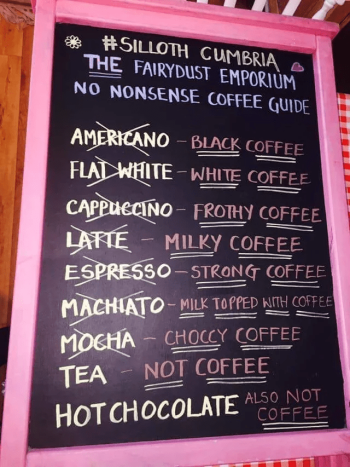 #SILLOTH CUMBRIA
THE FAIRYDUST EMPORIUM
NO NONSENSE COFFEE GUIDE
AMERICANO - BLACK COFFEE
FLAT WHITE - WHITE COFFEE
CAPPUCCINO - FROTHY COFFEE
LATTE - MILKY COFFEE
ESPRESSO - STRONG COFFEE
MACHIATO - MILK TOPPED WITH COFFEE
MOCHA - CHOCCY COFFEE
TEA - NOT COFFEE
HOT CHOCOLATE ALSO NOT COFFEE